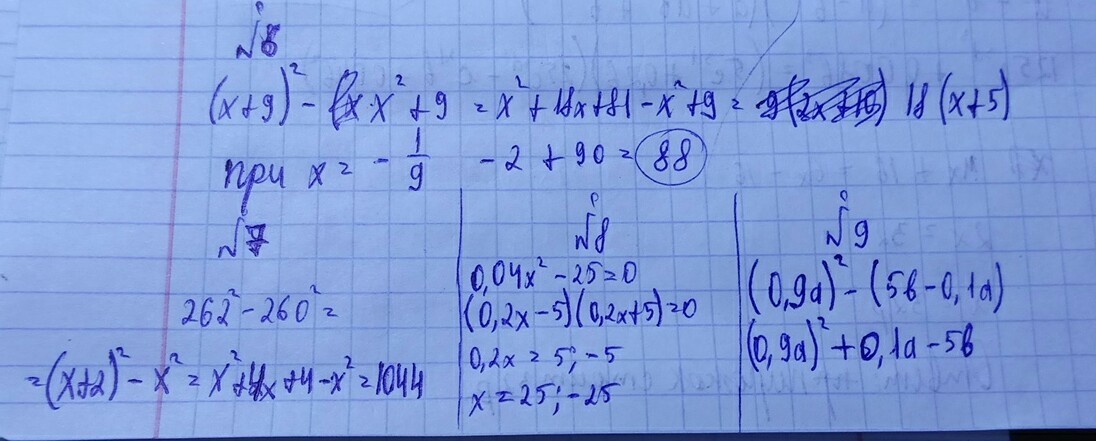 №6
(x+9)² - x² + 9 = x² + 18x + 81 - x² + 9 = 18(x+5)
при x = -1/9 -2 + 90 = 88
№7
262² - 260² =
= (x+2)² - x² = x² + 4x + 4 - x² = 1044
№8
0,04x² - 25 = 0
(0,2x - 5)(0,2x + 5) = 0
0,2x = 5; -5
x = 25; -25
№9
(0,9a)² - (5b - 0,1a)
(0,9a)² + 0,1a - 5b